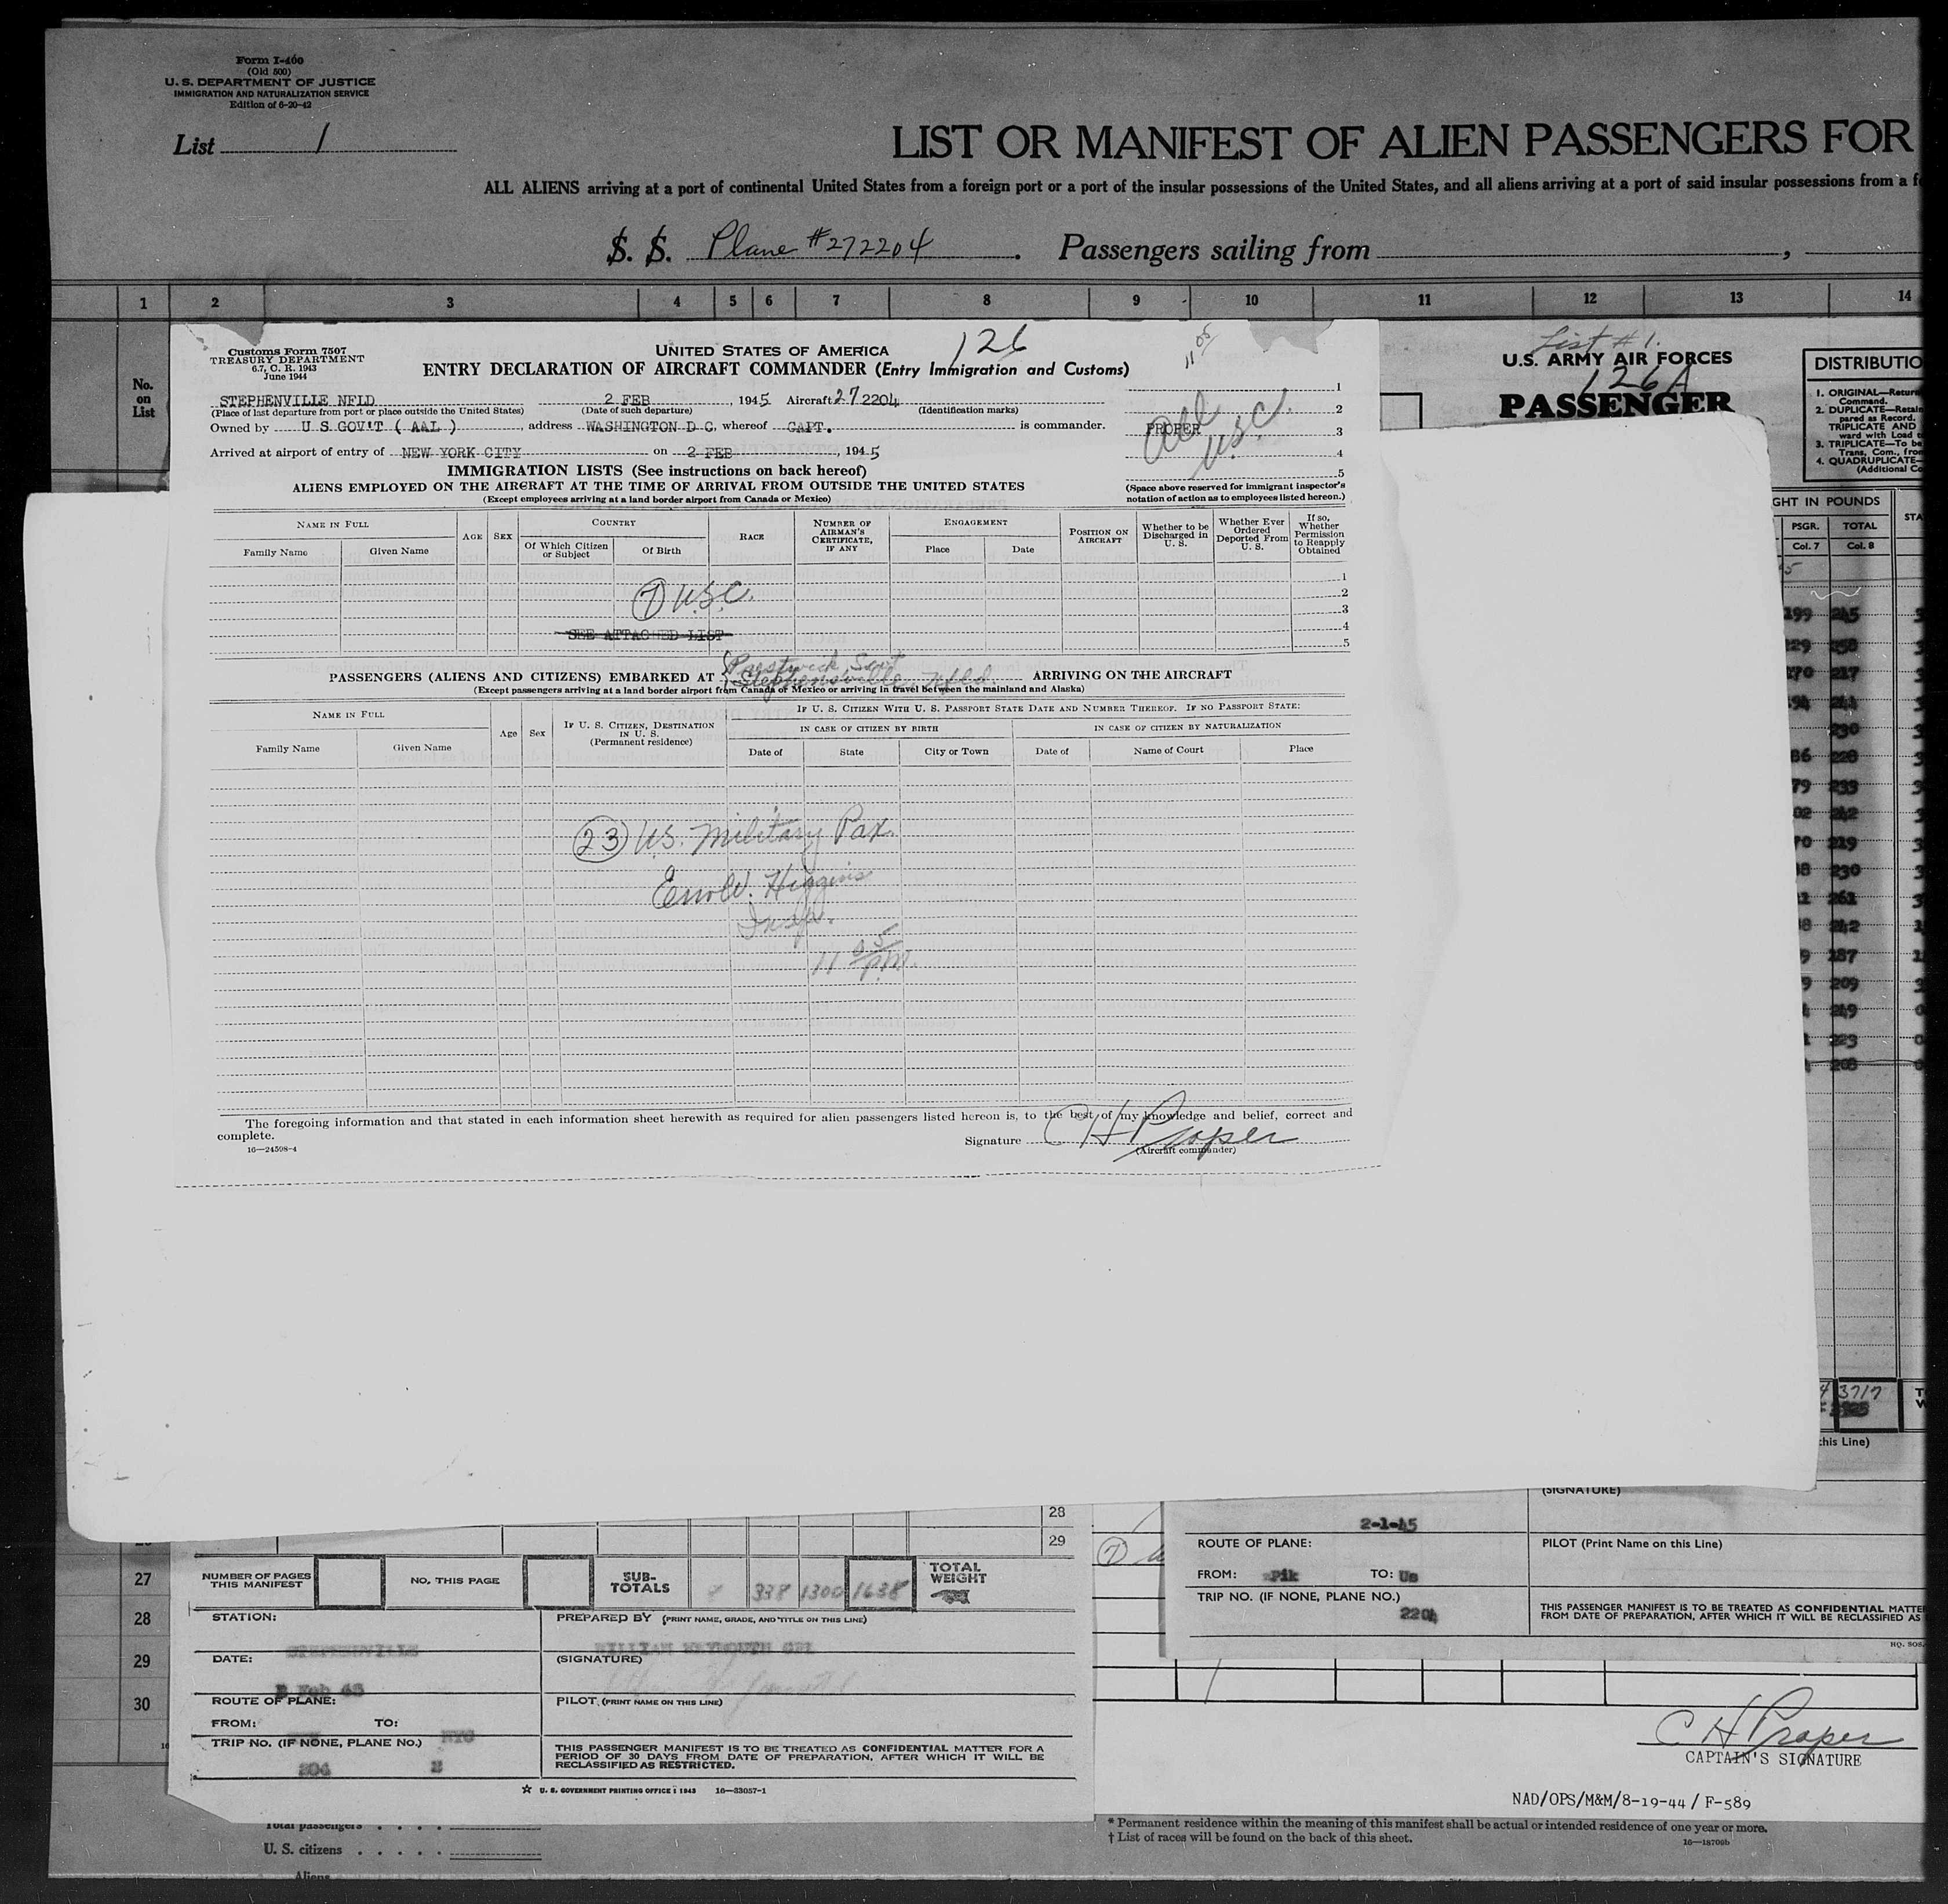 Form I-460
(Old 500)
U. S. DEPARTMENT OF JUSTICE
IMMIGRATION AND NATURALIZATION SERVICE
Edition of 6-20-42
List 1
LIST OR MANIFEST OF ALIEN PASSENGERS FOR
ALL ALIENS arriving at a port of continental United States from a foreign port or a port of the insular possessions of the United States, and all aliens arriving at a port of said insular possessions from a
S. S. Plane #272204. Passengers sailing from ,
1 2 3 4 5 6 7 8 9 10 11 12 13 14
No. on List
Customs Form 7507
TREASURY DEPARTMENT
6.7, C. R. 1943
June 1944
UNITED STATES OF AMERICA
126
11 05
ENTRY DECLARATION OF AIRCRAFT COMMANDER (Entry Immigration and Customs)
STEPHENVILLE NFLD 2 FEB, 1945 Aircraft 272204
(Place of last departure from port or place outside the United States) (Date of such departure) (Identification marks)
Owned by U S GOV'T ( AAL ), address WASHINGTON D C, whereof CAPT. is commander.
PROPER
All USC.
1
2
3
4
5
Arrived at airport of entry of NEW YORK CITY on 2 FEB, 1945
IMMIGRATION LISTS (See instructions on back hereof)
ALIENS EMPLOYED ON THE AIRCRAFT AT THE TIME OF ARRIVAL FROM OUTSIDE THE UNITED STATES
(Except employees arriving at a land border airport from Canada or Mexico)
(Space above reserved for immigrant inspector's
notation of action as to employees listed hereon.)
NAME IN FULL
Family Name Given Name
AGE SEX
COUNTRY
Of Which Citizen or Subject Of Birth
RACE
NUMBER OF AIRMAN'S CERTIFICATE, IF ANY
ENGAGEMENT
Place Date
POSITION ON AIRCRAFT
Whether to be Discharged in U. S.
Whether Ever Ordered Deported From U. S.
If so, Whether Permission to Reapply Obtained
1
2
3
4
5
(7) U.S.C.
SEE ATTACHED LIST
PASSENGERS (ALIENS AND CITIZENS) EMBARKED AT Prestwick Scot Stephensville, Nfld. ARRIVING ON THE AIRCRAFT
(Except passengers arriving at a land border airport from Canada or Mexico or arriving in travel between the mainland and Alaska)
NAME IN FULL
Family Name Given Name
Age Sex
IF U. S. CITIZEN, DESTINATION IN U. S.
(Permanent residence)
IF U. S. CITIZEN WITH U. S. PASSPORT STATE DATE AND NUMBER THEREOF. IF NO PASSPORT STATE:
IN CASE OF CITIZEN BY BIRTH IN CASE OF CITIZEN BY NATURALIZATION
Date of State City or Town Date of Name of Court Place
(23) U.S. Military Pax.
Higgins
Insp.
11 05 P.M.
The foregoing information and that stated in each information sheet herewith as required for alien passengers listed hereon is, to the best of my knowledge and belief, correct and
complete.
Signature C H Proper
(Aircraft commander)
16—24598-4
List #1.
U.S. ARMY AIR FORCES
126A
PASSENGER
DISTRIBUTIO
1. ORIGINAL—Return
Command.
2. DUPLICATE—Retain
pared as Record.
TRIPLICATE AND
ward with Load
3. TRIPLICATE—To be
Trans, Com., from
4. QUADRUPLICATE—
(Additional Co
GHT IN POUNDS STA
PSGR. TOTAL
Col. 7 Col. 8
199 245
29 258
270 217
230
86 228
79 233
242
70 219
230
262
242
187
209
249
223
208
3717
this Line)
28
29
27
NUMBER OF PAGES THIS MANIFEST
NO. THIS PAGE
SUB-TOTALS
338 1300 1638
TOTAL WEIGHT
28
STATION:
STEPHENVILLE
PREPARED BY (PRINT NAME, GRADE, AND TITLE ON THIS LINE)
WILLIAM
29
DATE:
2 Feb 45
(SIGNATURE)
30
ROUTE OF PLANE:
FROM: TO: NYC
PILOT (PRINT NAME ON THIS LINE)
TRIP NO. (IF NONE, PLANE NO.)
204
THIS PASSENGER MANIFEST IS TO BE TREATED AS CONFIDENTIAL MATTER FOR A
PERIOD OF 30 DAYS FROM DATE OF PREPARATION, AFTER WHICH IT WILL BE
RECLASSIFIED AS RESTRICTED.
☆ U. S. GOVERNMENT PRINTING OFFICE : 1943 16—33057-1
(SIGNATURE)
2-1-45
ROUTE OF PLANE:
PILOT (Print Name on this Line)
FROM: Pik TO: Us
TRIP NO. (IF NONE, PLANE NO.)
2204
THIS PASSENGER MANIFEST IS TO BE TREATED AS CONFIDENTIAL MATTE
FROM DATE OF PREPARATION, AFTER WHICH IT WILL BE RECLASSIFIED AS
HQ. SOS.
(7)
C H Proper
CAPTAIN'S SIGNATURE
NAD/OPS/M&M/8-19-44 / F-589
Total passengers . . . .
U. S. citizens . . . . .
Aliens
* Permanent residence within the meaning of this manifest shall be actual or intended residence of one year or more.
† List of races will be found on the back of this sheet.
16—18709b